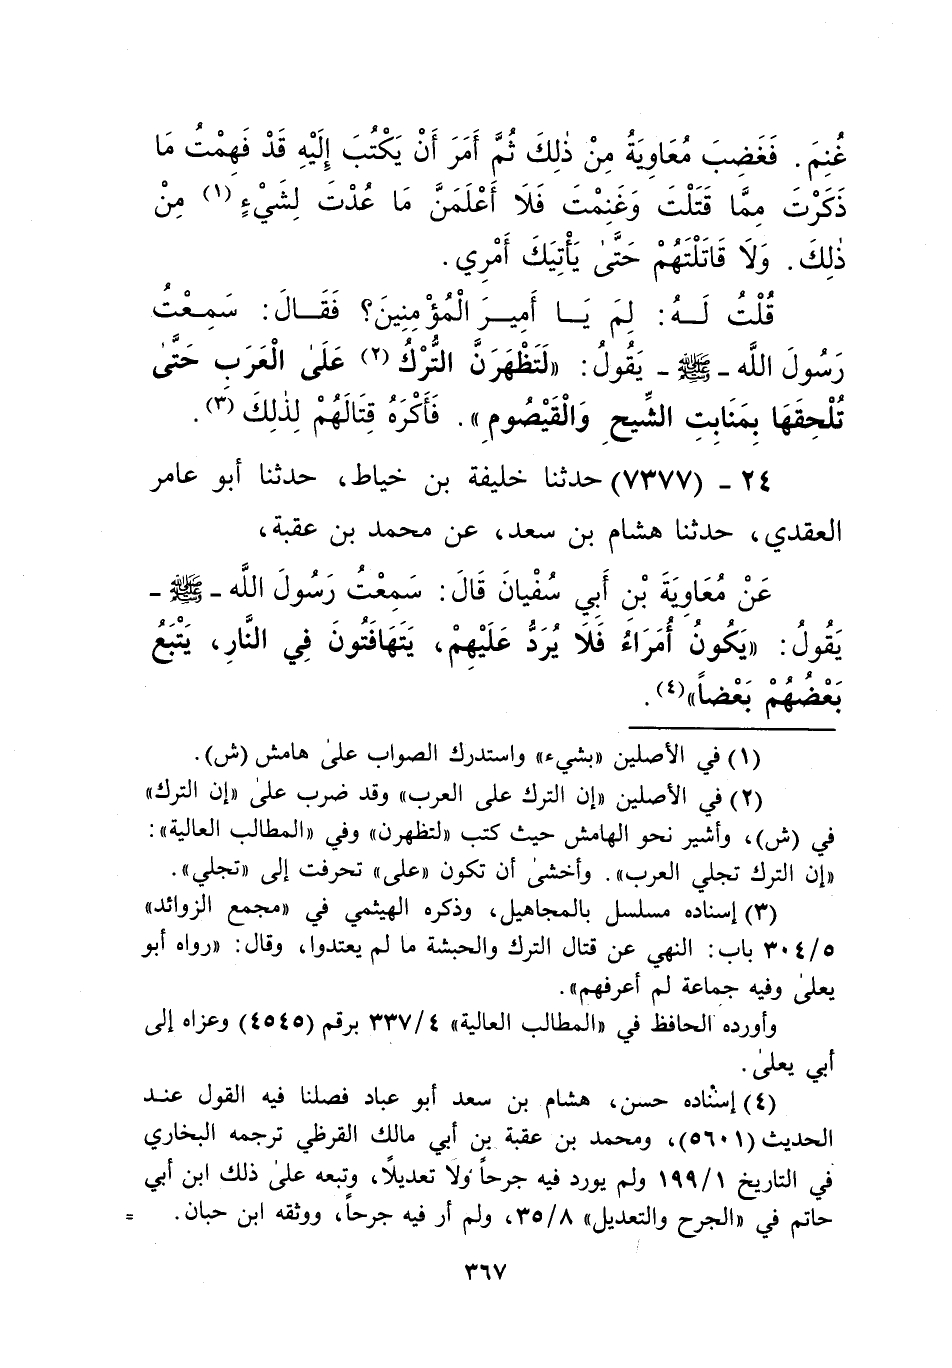 غُنِمَ. فَغَضِبَ مُعَاوِيَةُ مِنْ ذٰلِكَ ثُمَّ أَمَرَ أَنْ يَكْتُبَ إِلَيْهِ قَدْ فَهِمْتُ مَا
ذَكَرْتَ مِمَّا قَتَلْتَ وَغَنِمْتَ فَلَا أَعْلَمَنَّ مَا عُدْتَ لِشَيْءٍ (١) مِنْ
ذٰلِكَ. وَلَا قَاتَلْتَهُمْ حَتَّىٰ يَأْتِيَكَ أَمْرِي.
قُلْتُ لَـهُ: لِمَ يَـا أَمِيـرَ الْمُؤْمِنِينَ؟ فَقَـالَ: سَمِعْتُ
رَسُولَ اللَّه ـ ﷺ ـ يَقُولُ: «لَتَظْهَرَنَّ التُّرْكُ (٢) عَلَىٰ الْعَرَبِ حَتَّىٰ
تُلْحِقَهَا بِمَنَابِتِ الشِّيحِ وَالْقَيْصُومِ». فَأَكْرَهُ قِتَالَهُمْ لِذٰلِكَ (٣).
٢٤ ـ (٧٣٧٧) حدثنا خليفة بن خياط، حدثنا أبو عامر
العقدي، حدثنا هشام بن سعد، عن محمد بن عقبة،
عَنْ مُعَاوِيَةَ بْنِ أَبِي سُفْيَانَ قَالَ: سَمِعْتُ رَسُولَ اللَّه ـ ﷺ ـ
يَقُولُ: «يَكُونُ أُمَرَاءُ فَلَا يُرَدُّ عَلَيْهِمْ، يَتَهَافَتُونَ فِي النَّارِ، يَتْبَعُ
بَعْضُهُمْ بَعْضاً»(٤).
(١) في الأصلين «بشيء» واستدرك الصواب علىٰ هامش (ش).
(٢) في الأصلين «إن الترك على العرب» وقد ضرب علىٰ «إن الترك»
في (ش)، وأشير نحو الهامش حيث كتب «لتظهرن» وفي «المطالب العالية»:
«إن الترك تجلي العرب». وأخشىٰ أن تكون «على» تحرفت إلى «تجلي».
(٣) إسناده مسلسل بالمجاهيل، وذكره الهيثمي في «مجمع الزوائد»
٣٠٤/٥ باب: النهي عن قتال الترك والحبشة ما لم يعتدوا، وقال: «رواه أبو
يعلىٰ وفيه جماعة لم أعرفهم».
وأورده الحافظ في «المطالب العالية» ٣٣٧/٤ برقم (٤٥٤٥) وعزاه إلى
أبي يعلىٰ.
(٤) إسناده حسن، هشام بن سعد أبو عباد فصلنا فيه القول عنـد
الحديث (٥٦٠١)، ومحمد بن عقبة بن أبي مالك القرظي ترجمه البخاري
في التاريخ ١٩٩/١ ولم يورد فيه جرحاً ولا تعديلاً، وتبعه علىٰ ذلك ابن أبي
حاتم في «الجرح والتعديل» ٣٥/٨، ولم أر فيه جرحاً، ووثقه ابن حبان. =
٣٦٧